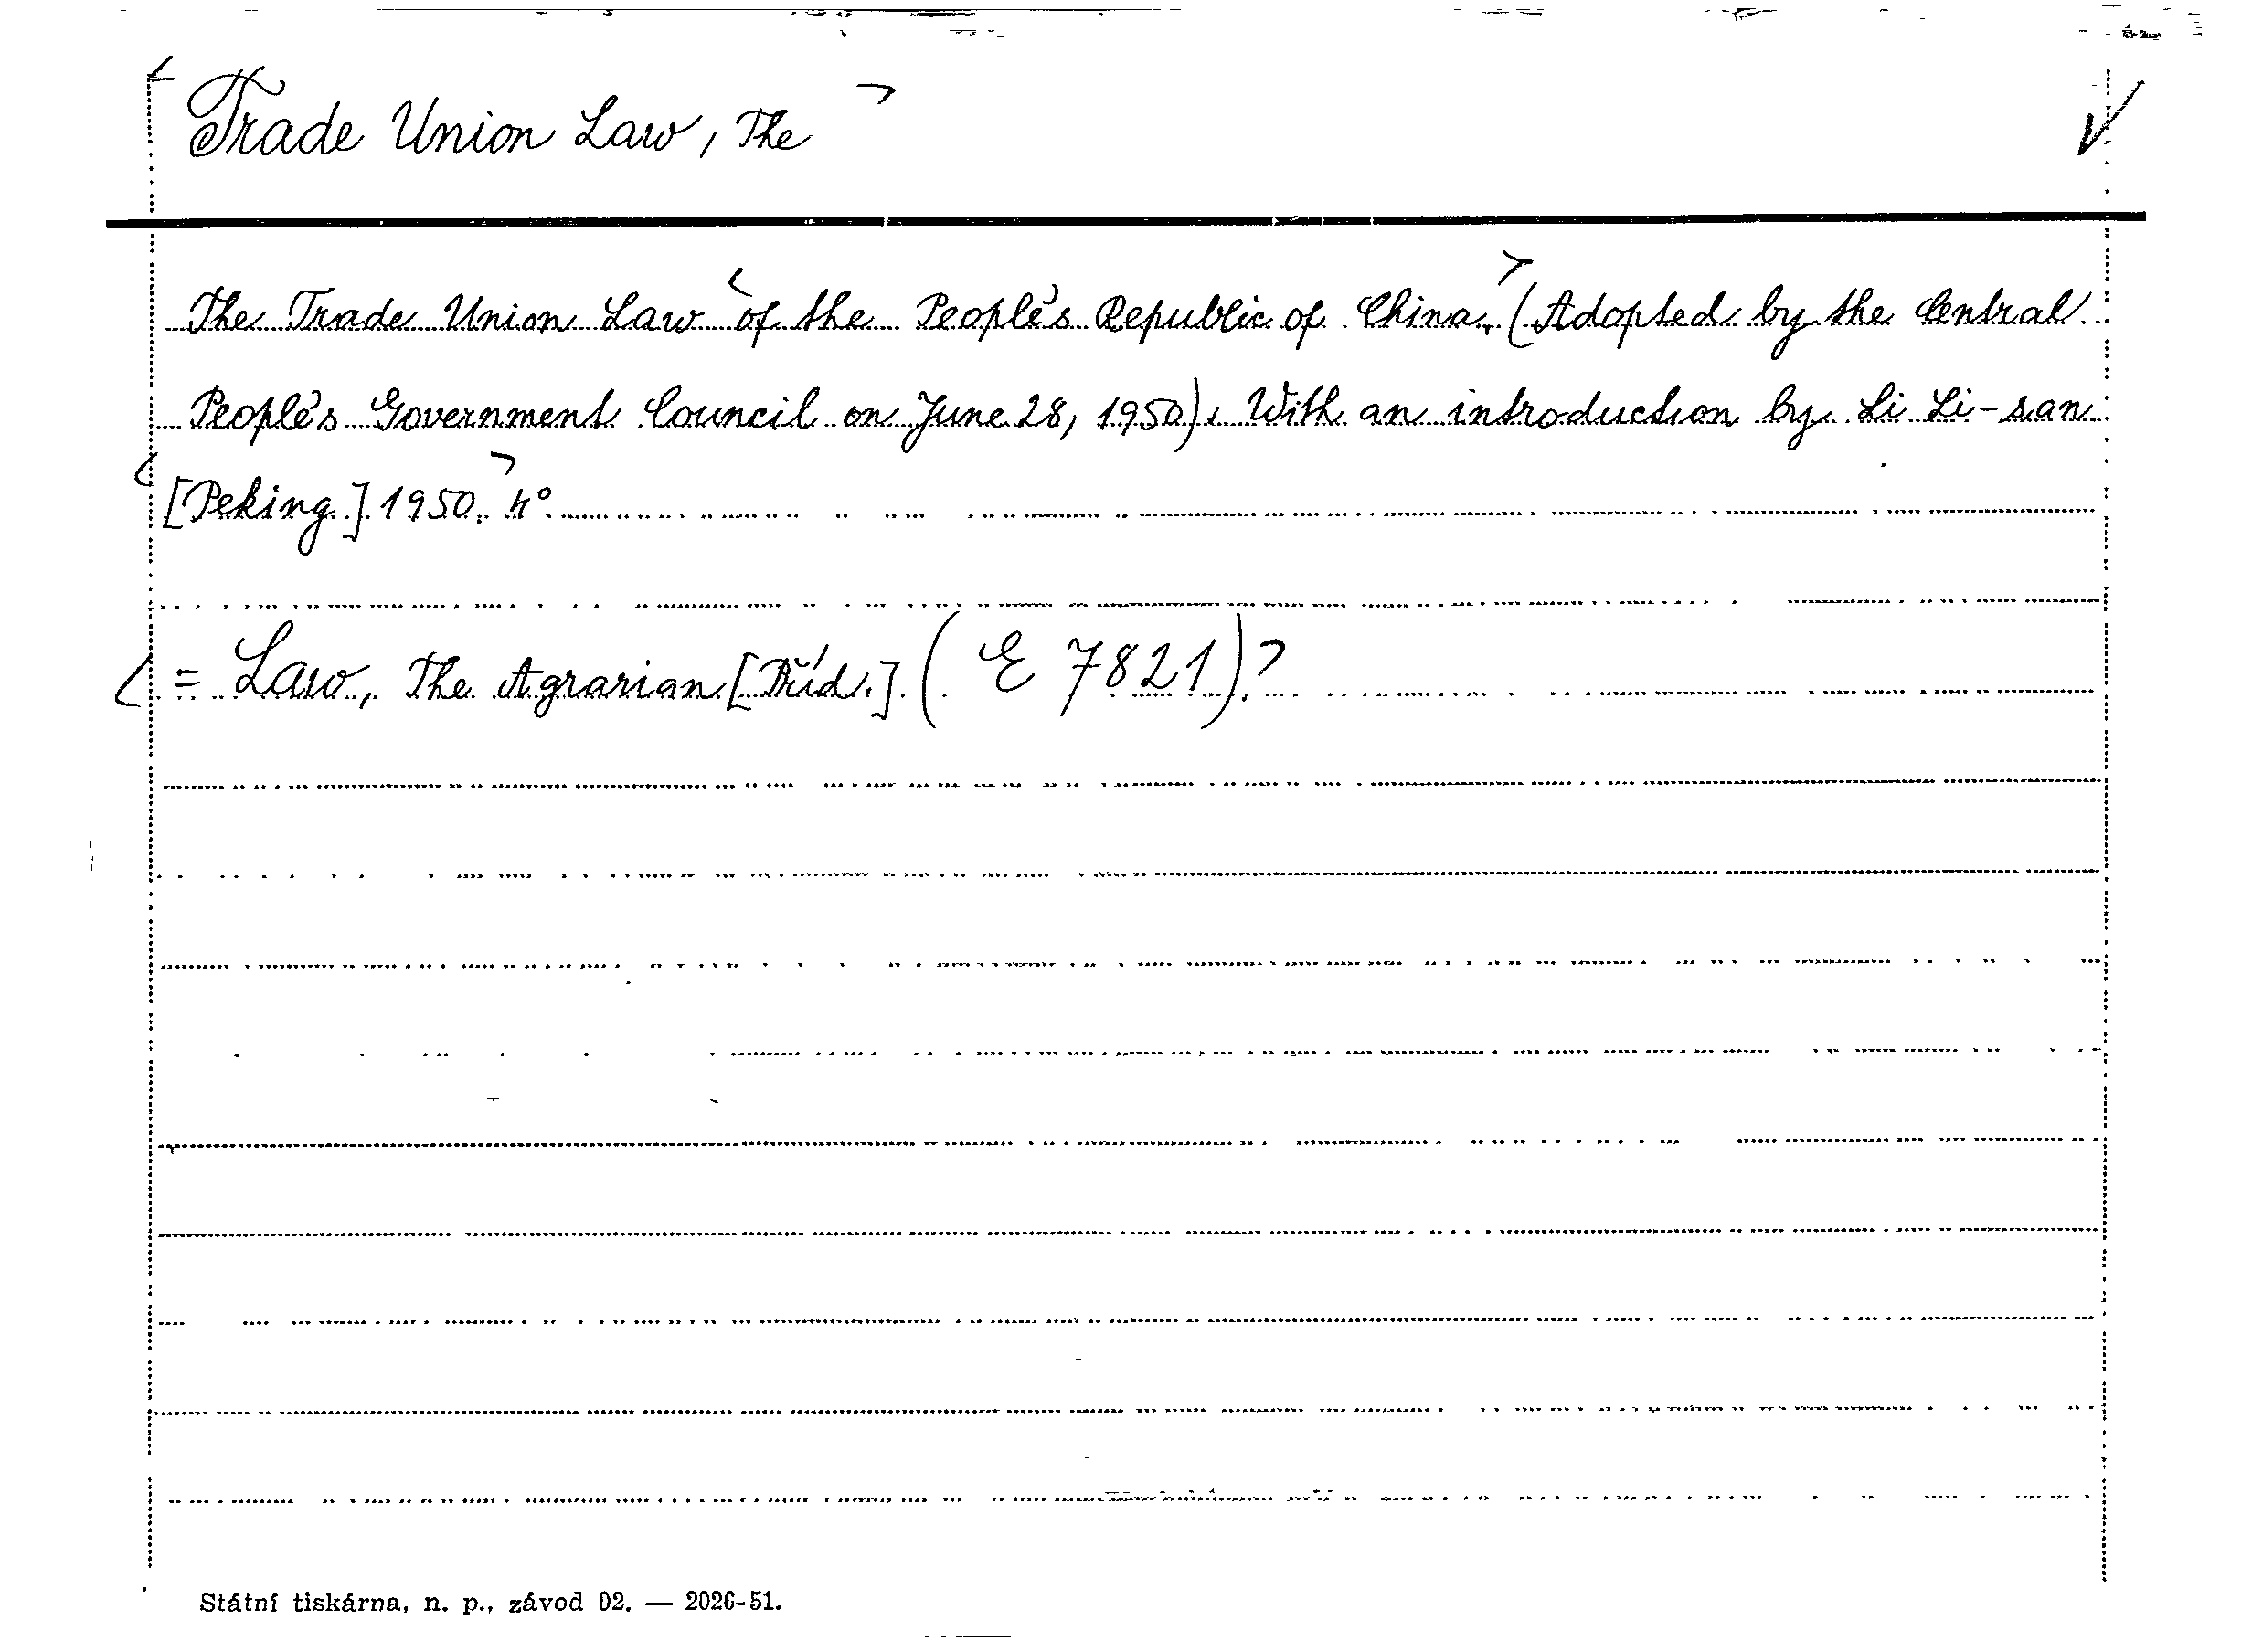 Trade Union Law, The
The Trade Union Law of the People's Republic of China. (Adopted by the Central
People's Government Council on June 28, 1950). With an introduction by Li Li-san
[Peking] 1950. 4°
= Law, The Agrarian [Příd.] (E 7821).
Státní tiskárna, n. p., závod 02. — 2026-51.